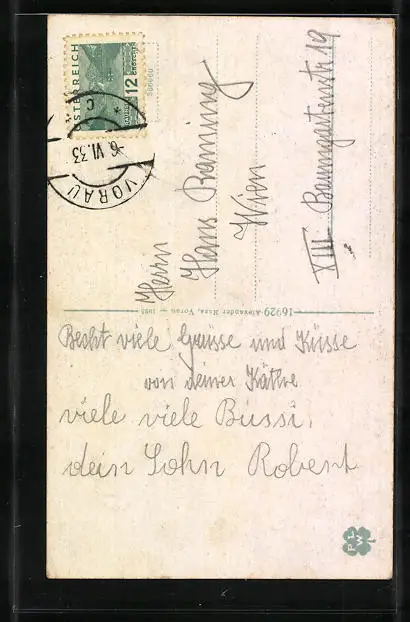 ÖSTERREICH
12
GROSCHEN
VORAU
-6.VI.33
* c
Herrn
Hans Raming
Wien
XIII Baumgartenstr 19
16929 Alexander Haas, Vorau — 1932
Recht viele Grüsse und Küsse
von deiner Käthe
viele viele Bussi.
dein Sohn Robert
P L W